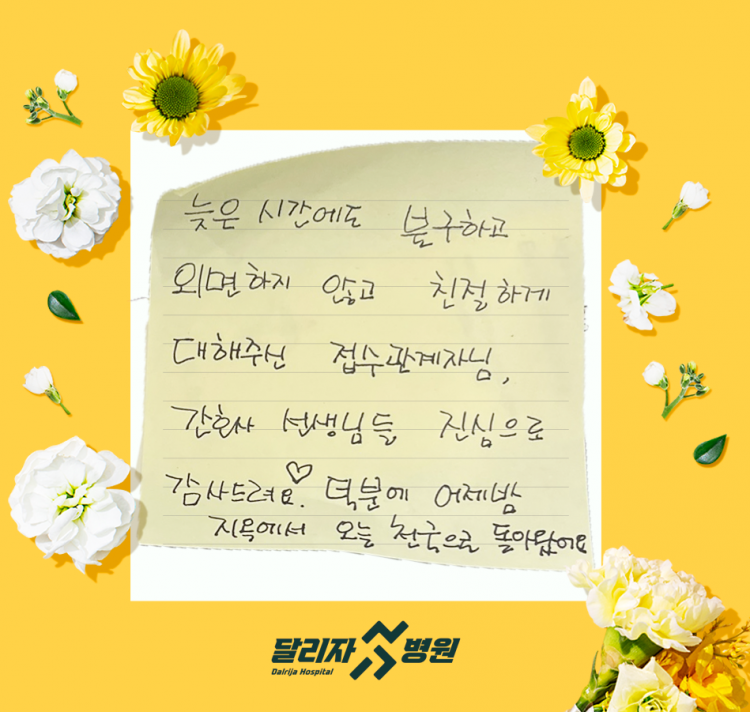 늦은 시간에도 불구하고
외면하지 않고 친절하게
대해주신 접수관계자님,
간호사 선생님들 진심으로
감사드려요.♡ 덕분에 어제밤
지옥에서 오늘 천국으로 돌아왔어요
달리자 병원
Dalrija Hospital